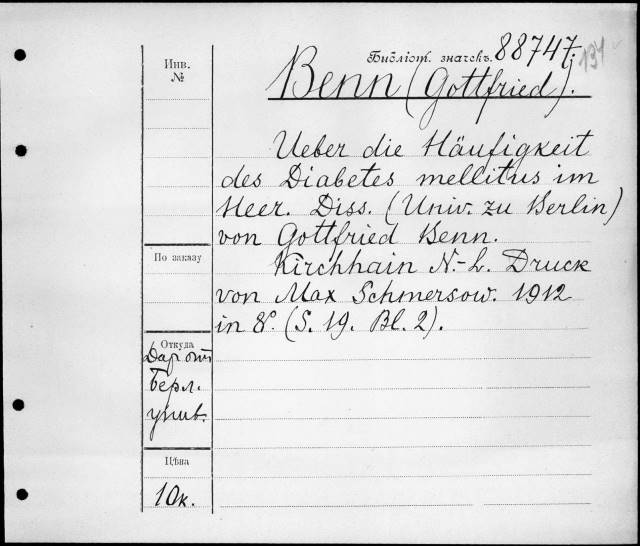 Инв.
№
Библіот. значекъ. 88747.
137
Benn (Gottfried).
Ueber die Häufigkeit
des Diabetes mellitus im
Heer. Diss. (Univ. zu Berlin)
von Gottfried Benn.
Kirchhain N.-L. Druck
von Max Schmersow. 1912
in 8°. (S. 19. Bl. 2).
По заказу
Откуда
Дар отъ
Берл.
унив.
Цѣна
10к.